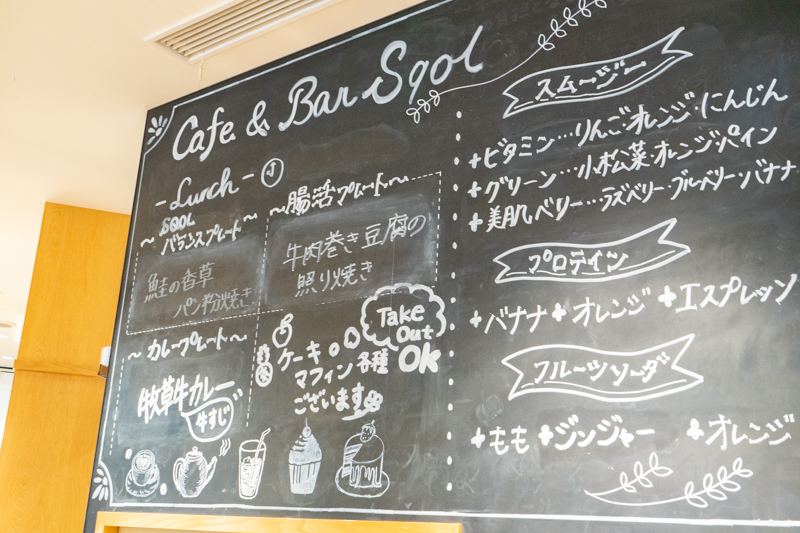 Cafe & Bar Sqol
- Lunch -
SQOL
~ バランスプレート ~
鮭の香草
パン粉焼き
~ 腸活プレート ~
牛肉巻き豆腐の
照り焼き
~ カレープレート ~
牧草牛カレー
牛すじ
Take
Out
Ok
ケーキ
マフィン各種
ございます
スムージー
+ビタミン…りんご・オレンジ・にんじん
+グリーン…小松菜・オレンジ・パイン
+美肌ベリー…ラズベリー・ブルーベリー・バナナ
プロテイン
+バナナ+オレンジ+エスプレッソ
フルーツソーダ
+もも+ジンジャー+オレンジ